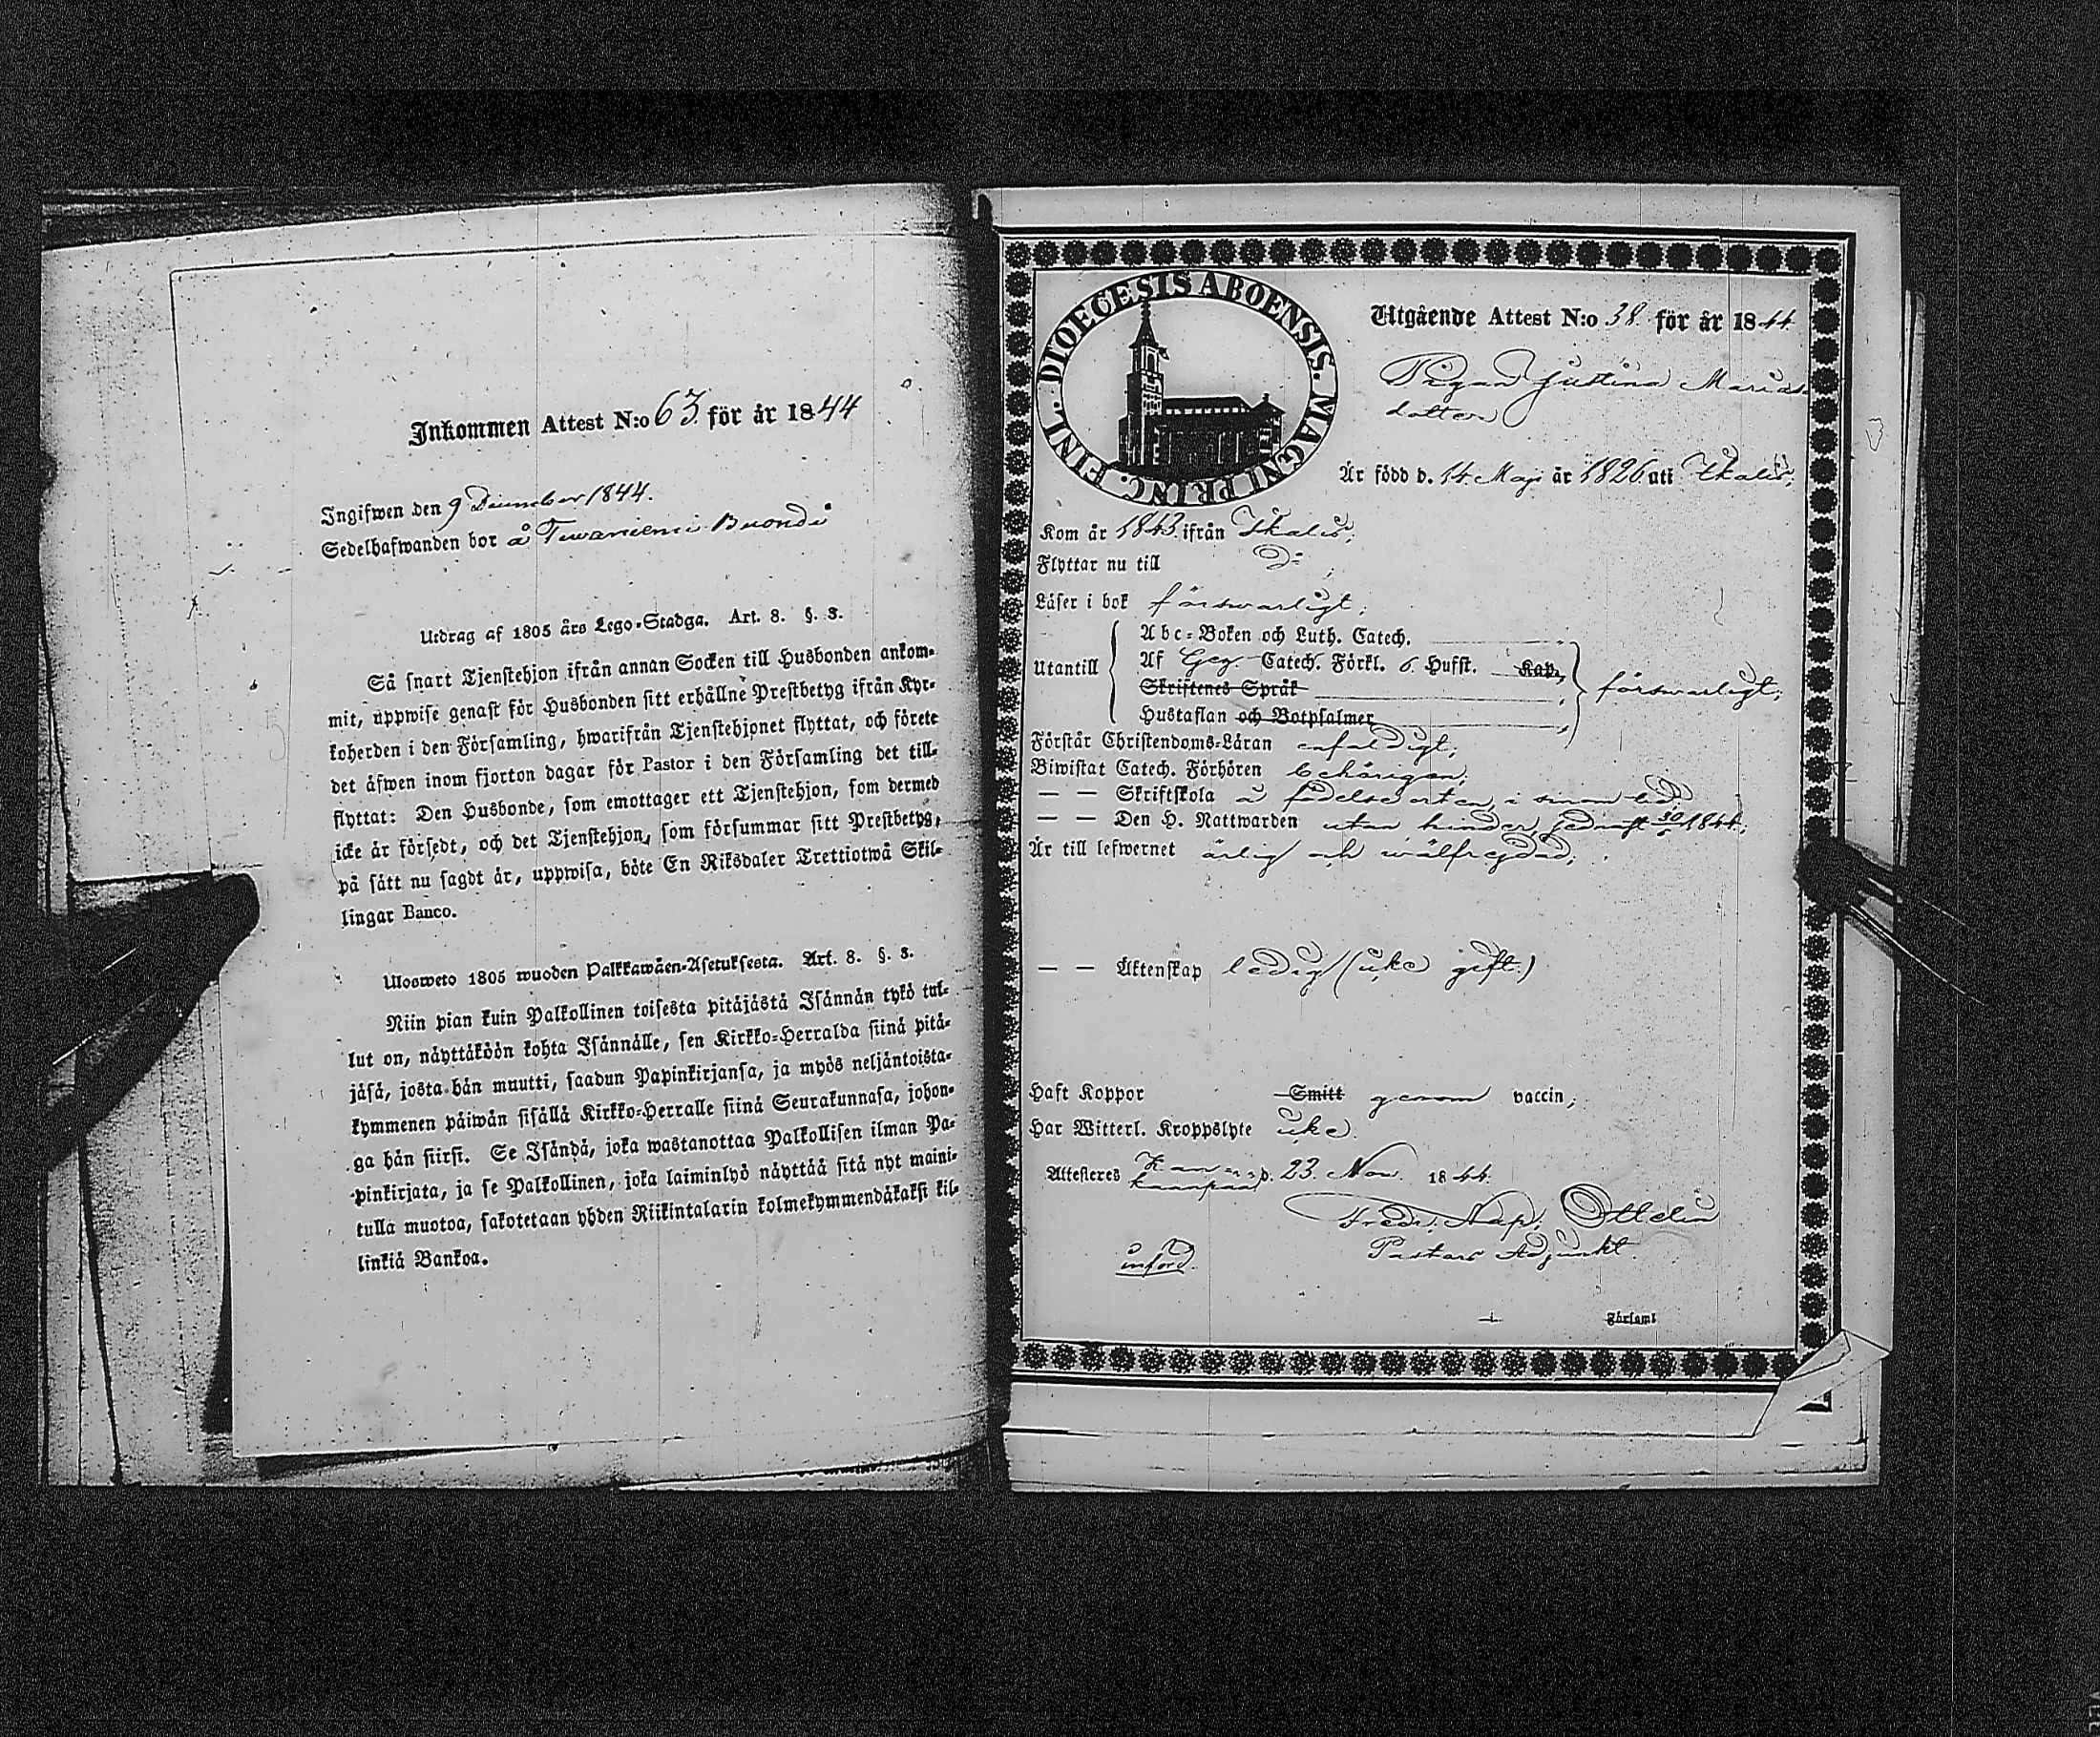 Inkommen Attest N:o 63 för år 1844
Ingifwen den 9 December 1844.
Sedelhafwanden bor å Tewaniemi Buondi
Utdrag af 1805 års Lego-Stadga. Art. 8. §. 3.
Så snart Tjenstehjon ifrån annan Socken till Husbonden ankom-
mit, uppwise genast för Husbonden sitt erhållne Prestbetyg ifrån Kyr-
koherden i den Församling, hwarifrån Tjenstehjonet flyttat, och förete
det äfwen inom fjorton dagar för Pastor i den Församling det till-
flyttat: Den Husbonde, som emottager ett Tjenstehjon, som dermed
icke är försedt, och det Tjenstehjon, som försummar sitt Prestbetyg,
på sätt nu sagdt är, uppwisa, böte En Riksdaler Trettiotwå Skil-
lingar Banco.
Ulosweto 1805 wuoden Palkkawäen-Asetuksesta. Art. 8. §. 3.
Niin pian kuin Palkollinen toisesta pitäjästä Isännän tykö tul-
lut on, näyttäköön kohta Isännälle, sen Kirkko-Herralda siinä pitä-
jäsä, josta hän muutti, saadun Papinkirjansa, ja myös neljäntoista-
kymmenen päiwän sisällä Kirkko-Herralle siinä Seurakunnasa, johon-
ga hän siirst. Se Isändä, joka wastanottaa Palkollisen ilman Pa-
pinkirjata, ja se Palkollinen, joka laiminlyö näyttää sitä nyt maini-
tulla muotoa, sakotetaan yhden Riikintalarin kolmekymmendäkaksi kil-
linkiä Bankoa.
DIOECESIS ABOENSIS. MAGNI PRINC. FINL.
Utgående Attest N:o 38. för år 1844.
Pigan Justina Marias
dotter
Är född d. 14 Maji år 1826 uti Ikalis,
Kom år 1843 ifrån Ikalis,
Flyttar nu till D:
Läser i bok förswarligt,
Utantill Abc-Boken och Luth. Catech.
Af Geg. Catech. Förkl. 6. Hufst. Kap.
Skriftenes Språk förswarligt,
Hustaflan och Botpsalmer
Förstår Christendoms-Läran enfaldigt,
Biwistat Catech. Förhören behörigen,
— — Skriftskola å födelseorten i sinom tid
— — Den H. Nattwarden utan hinder, sednast 30/6 1844,
Är till lefwernet ärlig och wälfrejdad,
— — Äktenskap ledig (icke gift.)
Haft Koppor Smitt genom vaccin,
Har Witterl. Kroppslyte icke.
Attesteres Kankaanpää d. 23. Nov. 1844.
Fredr. Nap. Ottelin
Pastors Adjunkt.
införd.
i Församl